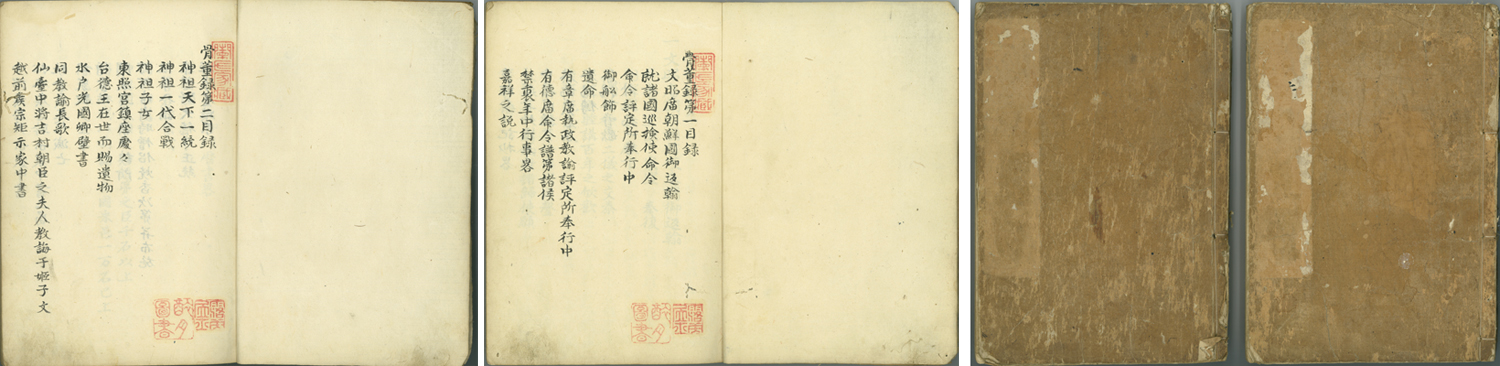 骨董録第二目録
神祖天下一統
神祖一代合戦
神祖子女
東照宮鎮座慶々
台徳王在世而賜遺物
水戸光國卿壁書
同教諭長歌
仙臺中将吉村朝臣之夫人教誨于姫子文
越前黄宗矩示家中書
骨董録第一目録
文昭廟朝鮮國御返翰
就諸國巡検使命令
命令評定所奉行中
御船飾
遺命
有章廟執政教諭評定所奉行中
有徳廟命令譜第諸侯
禁裏年中行事畧
嘉祥之説